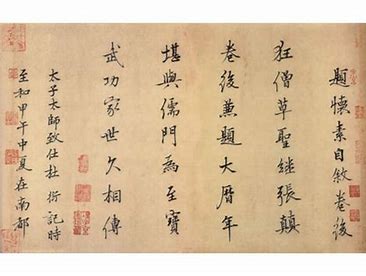 題懷素自敘卷後
狂僧草聖継張顛
卷後兼題大曆年
堪與儒門為至寶
武功家世久相傳
太子太師致仕杜衍記時
至和甲午中夏在南都